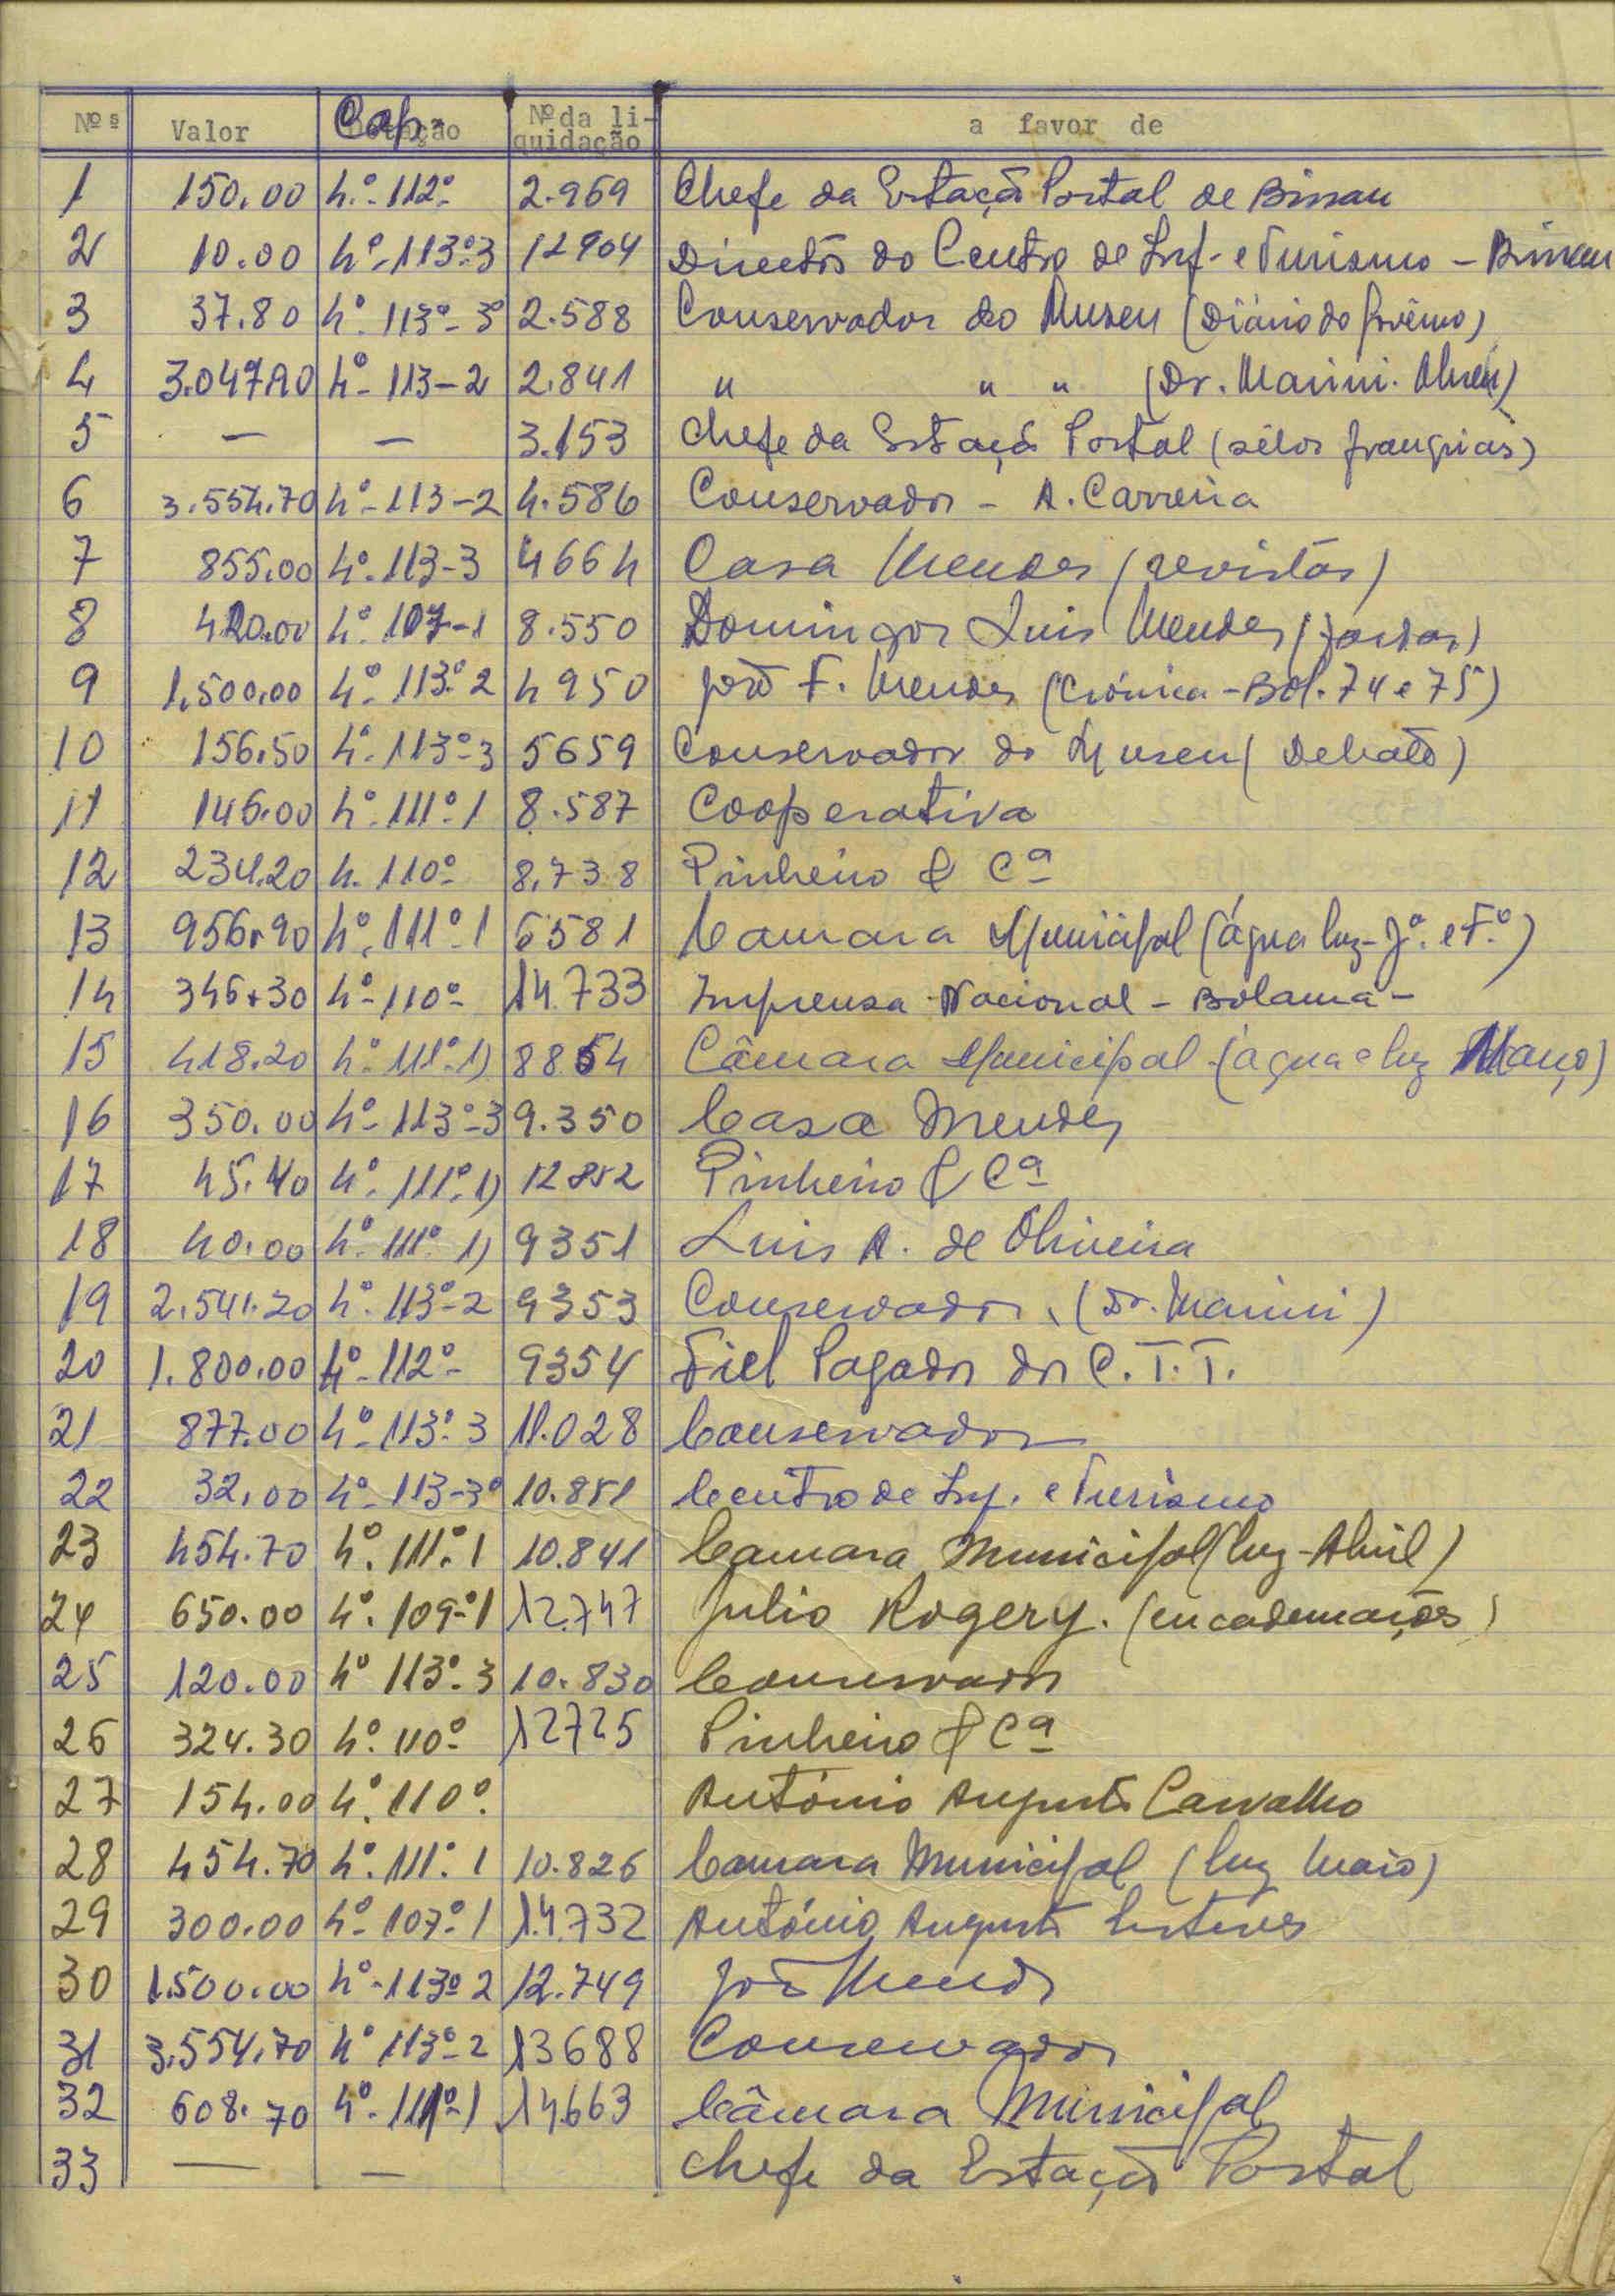 Nºs Valor Cap. Nº da li-quidação a favor de
1 150.00 4.º 112º 2.969 Chefe da Estação Postal de Bissau
2 10.00 4º-113º-3 12904 Director do Centro de Inf. e Turismo - Bissau
3 37.80 4º-113º-3º 2.588 Conservador do Museu (Diário do Govêrno)
4 4º-113-2 2.841 " " " (Dr. Marini. Abreu)
5 — — 3.153 Chefe da Estação Postal (sêlos franquias)
6 3.554.70 4º-113-2 4.586 Conservador - A. Carreira
7 855.00 4º.113-3 4664 Casa Mendes (revistas)
8 420.00 4º.107-1 8.550 Domingos Luis Mendes
9 1.500.00 4º.113º.2 4950 João F. Mendes (Crónica - Bol. 74 e 75)
10 156.50 4º.113º-3 5659 Conservador do Museu (Debate)
11 146.00 4º.111º.1 8.587 Cooperativa
12 234.20 4.110º 8.738 Pinheiro & Cª
13 956.90 4º.111º-1 6581 Camara Municipal (água luz - Jº. e Fº.)
14 346.30 4º-110º 14.733 Imprensa Nacional - Bolama -
15 418.20 4º.111º.1) 8854 Câmara Municipal (água e luz Março)
16 350.00 4º-113º-3 9.350 Casa Mendes
17 45.40 4º.111º.1) 12852 Pinheiro & Cª
18 40.00 4º.111º.1) 9351 Luis A. de Oliveira
19 2.541.20 4º.113º-2 9353 Conservador, (Dr. Marini)
20 1.800.00 4º-112º- 9354 Fiel Pagador dos C.T.T.
21 877.00 4º-113º.3 11.028 Conservador
22 32.00 4º-113-3º 10.851 Centro de Inf. e Turismo
23 454.70 4º.111º.1 10.841 Camara Municipal (luz - Abril)
24 650.00 4º.109º-1 12.747 Julio Rogery. (encadernações)
25 120.00 4º 113º.3 10.830 Conservador
26 324.30 4º.110º 12725 Pinheiro & Cª
27 154.00 4º.110º. António Augusto Carvalho
28 454.70 4º.111º.1 10.826 Camara Municipal (luz Maio)
29 300.00 4º-107º.1 14.732 António Augusto Esteves
30 1.500.00 4º-113º 2 12.749 João Mendes
31 3.554.70 4º 113º-2 13688 Conservador
32 608.70 4º.111º-1 14663 Câmara Municipal
33 — — Chefe da Estação Postal